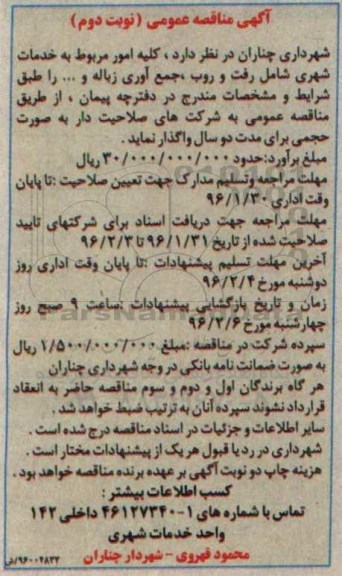 آگهی مناقصه عمومی (نوبت دوم)
شهرداری چناران در نظر دارد ، کلیه امور مربوط به خدمات
شهری شامل رفت و روب ،جمع آوری زباله و ... را طبق
شرایط و مشخصات مندرج در دفترچه پیمان ، از طریق
مناقصه عمومی به شرکت های صلاحیت دار به صورت
حجمی برای مدت دو سال واگذار نماید .
مبلغ برآورد:حدود ۳۰/۰۰۰/۰۰۰/۰۰۰ ریال
مهلت مراجعه وتسلیم مدارک جهت تعیین صلاحیت :تا پایان
وقت اداری ۹۶/۱/۳۰
مهلت مراجعه جهت دریافت اسناد برای شرکتهای تایید
صلاحیت شده از تاریخ ۹۶/۱/۳۱ تا ۹۶/۲/۳
آخرین مهلت تسلیم پیشنهادات :تا پایان وقت اداری روز
دوشنبه مورخ ۹۶/۲/۴
زمان و تاریخ بازگشایی پیشنهادات :ساعت ۹ صبح روز
چهارشنبه مورخ ۹۶/۲/۶
سپرده شرکت در مناقصه :مبلغ ۱/۵۰۰/۰۰۰/۰۰۰ ریال
به صورت ضمانت نامه بانکی در وجه شهرداری چناران
هر گاه برندگان اول و دوم و سوم مناقصه حاضر به انعقاد
قرارداد نشوند سپرده آنان به ترتیب ضبط خواهد شد .
سایر اطلاعات و جزئیات در اسناد مناقصه درج شده است .
شهرداری در رد یا قبول هر یک از پیشنهادات مختار است .
هزینه چاپ دو نوبت آگهی بر عهده برنده مناقصه خواهد بود .
کسب اطلاعات بیشتر :
تماس با شماره های ۱-۴۶۱۲۷۳۴۰ داخلی ۱۴۲
واحد خدمات شهری
محمود قهروی - شهردار چناران
۹۶۰۰۴۸۳۳/ض